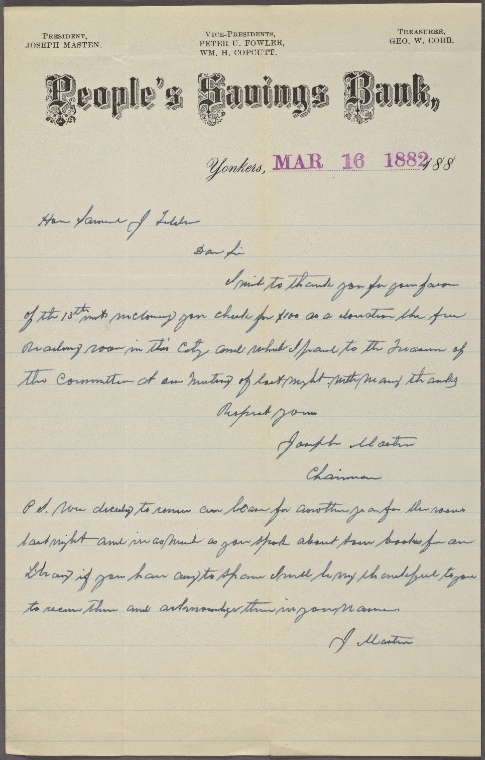 PRESIDENT,
JOSEPH MASTEN.
VICE-PRESIDENTS,
PETER U. FOWLER,
WM. H. COPCUTT.
TREASURER,
GEO. W. COBB.
People's Savings Bank,
Yonkers, MAR 16 1882 188
Hon Samuel J Tilden
Dear Sir
I wish to thank you for your favor
of the 13th inst inclosing your check for $100 as a donation the free
Reading room in this City and which I paid to the Treasurer of
the Committee at our Meeting of last night, with many thanks
Respect yours
Joseph Masten
Chairman
P S. We decided to renew our lease for another year for the rooms
last night and in as much as you spoke about some books for our
Library if you have any to spare I will be very thankful to you
to receive them and acknowledge them in your name.
J Masten